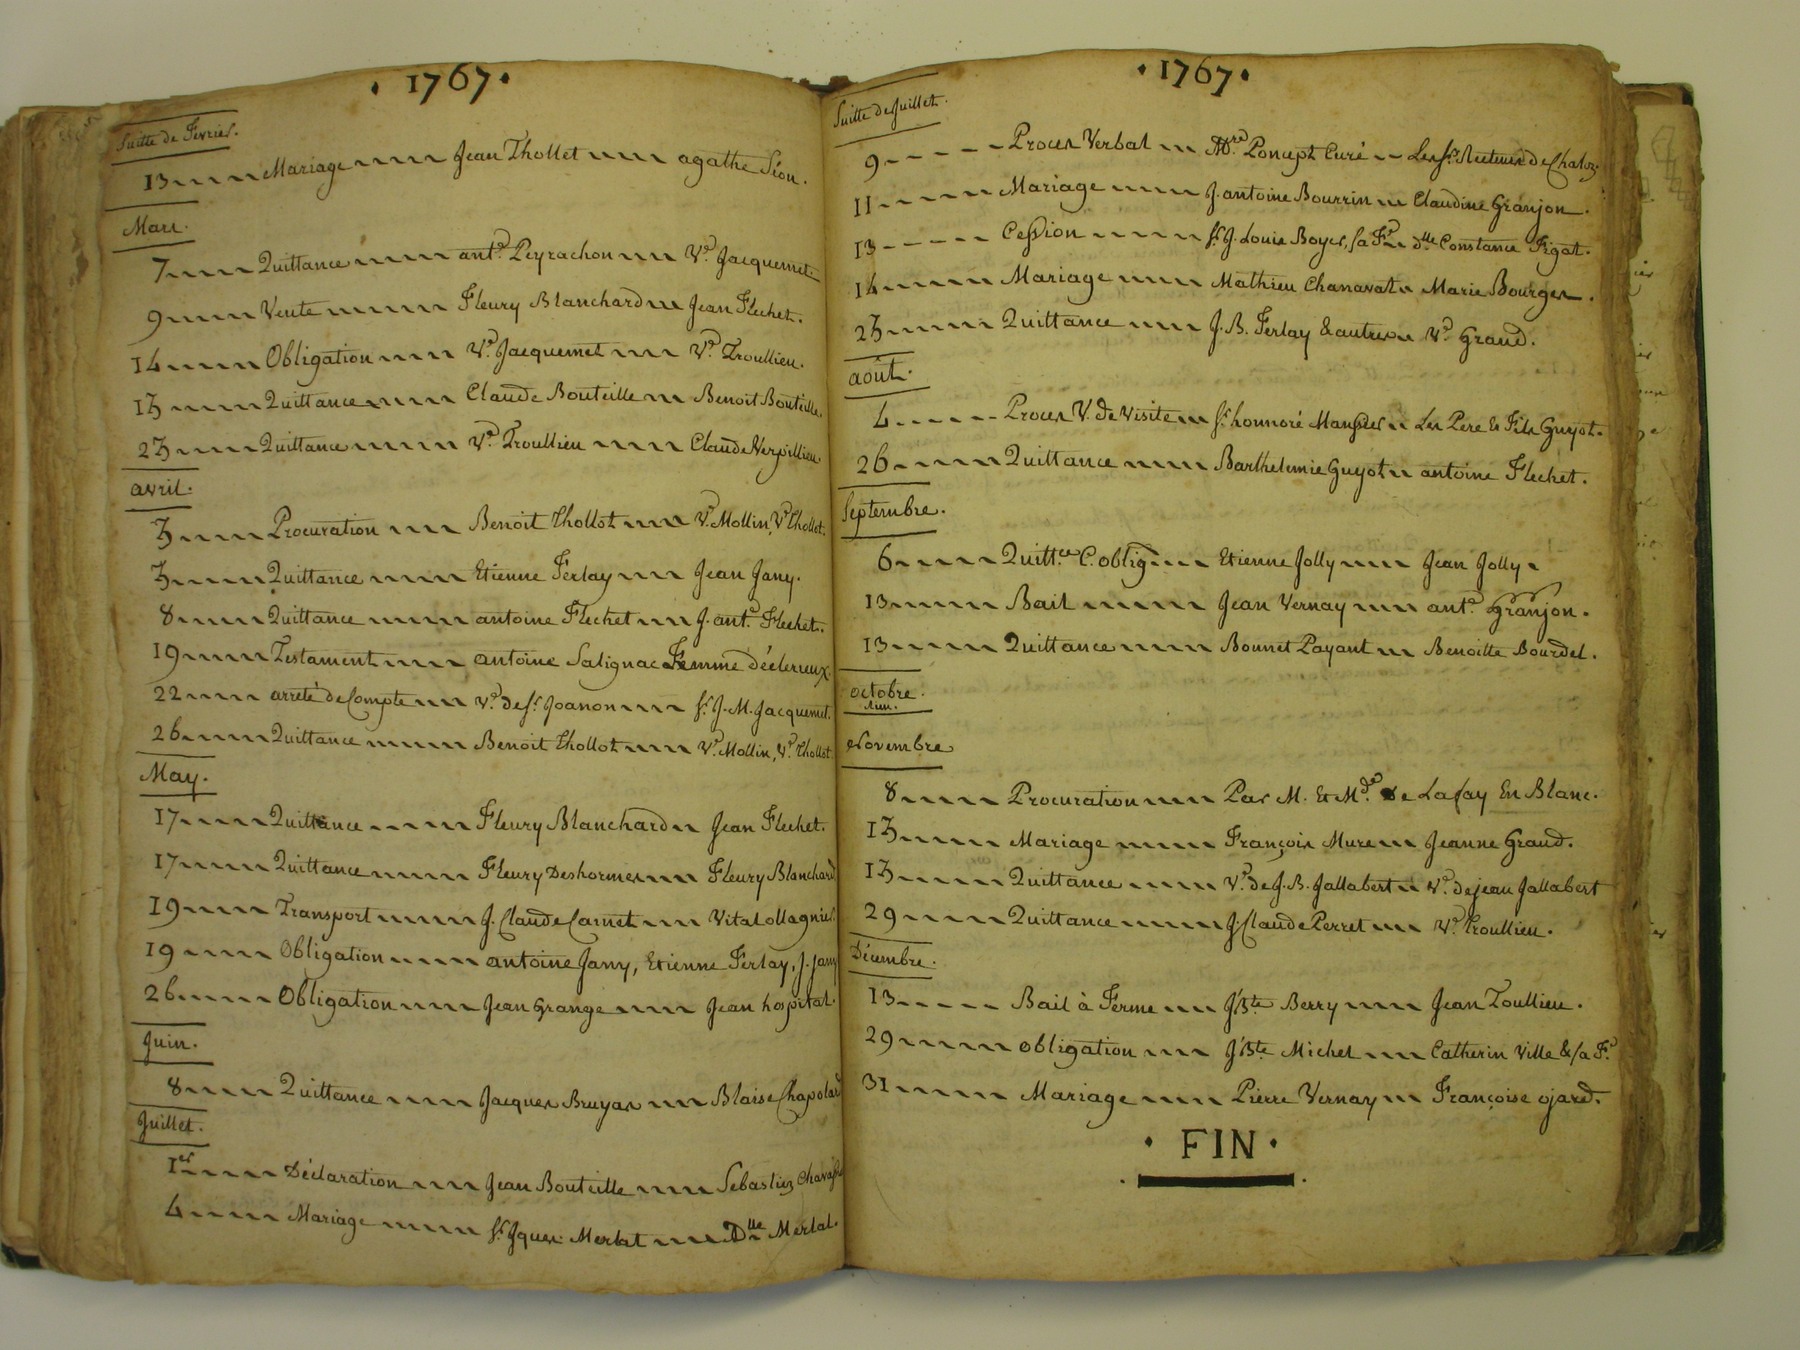 1767
Suitte de Fevrier.
13 Mariage Jean Thollet agathe Séon.
Mars.
7 Quittance ant.e Peyrachon V.e Jacquemet
9 Vente Fleury Blanchard Jean Flechet.
14 Obligation V.e Jacquemet V.e Troullieu.
15 Quittance Claude Bouteille Benoit Bouteille.
23 Quittance V.e Troullieu Claude Verpillieu
avril.
3 Procuration Benoit Thollot V.e Mollin, V.e Thollet.
3 Quittance Etienne Ferlay Jean Jany.
8 Quittance antoine Flechet J. ant.e Flechet.
19 Testament antoine Salignac Femme déclerieux.
22 arreté de Compte V.e de Sr. Joanon Sr. J. M. Jacquemet.
26 Quittance Benoit Thollot V.e Mollin, V.e Thollot
May.
17 Quittance Fleury Blanchard Jean Flechet.
17 Quittance Fleury Deshormes Fleury Blanchard
19 Transport J. Claude Carnet Vital Magnier
19 Obligation antoine Jany, Etienne Ferlay, J. Jany
26 Obligation Jean Grange Jean hospital.
Juin.
8 Quittance Jacques Bruyas Blaise Chapolard
Juillet.
1er Déclaration Jean Bouteille
4 Mariage Sr. Jques Merlat Dlle Merlat.
1767
Suitte de Juillet.
9 Proces Verbal Poncept Curé Les Srs. Recteurs de
11 Mariage J. antoine Bourrin Claudine Granjon.
13 Cession Sr. J. Louis Boyer, sa Fe dlle Constance Figat.
14 Mariage Mathieu Chanavat Marie Bourges.
23 Quittance J. B. Ferlay & autres V.e Grand.
août.
4 Proces V. de Visite Sr. honnoré Les Pere & Fils Guyot.
26 Quittance Barthelemie Guyot antoine Flechet.
Septembre.
6 Quitt.ce C. oblig. Etienne Jolly Jean Jolly
13 Bail Jean Vernay ant.e Granjon.
13 Quittance Bonnet Payant Benoitte Bourdel.
octobre.
Novembre
8 Procuration Par M. Et Mde. De Lafay En Blanc.
13 Mariage François Mure Jeanne Grand.
13 Quittance V.e de J. B. Jallabert V.e de jean Jallabert
29 Quittance J. Claude Perret V.e Troullieu.
Décembre.
13 Bail à Ferme J. Bte Berry Jean Toullieu.
29 obligation J. Bte Michel Catherin Ville & sa Fe.
31 Mariage Pierre Vernay Françoise ojard.
FIN